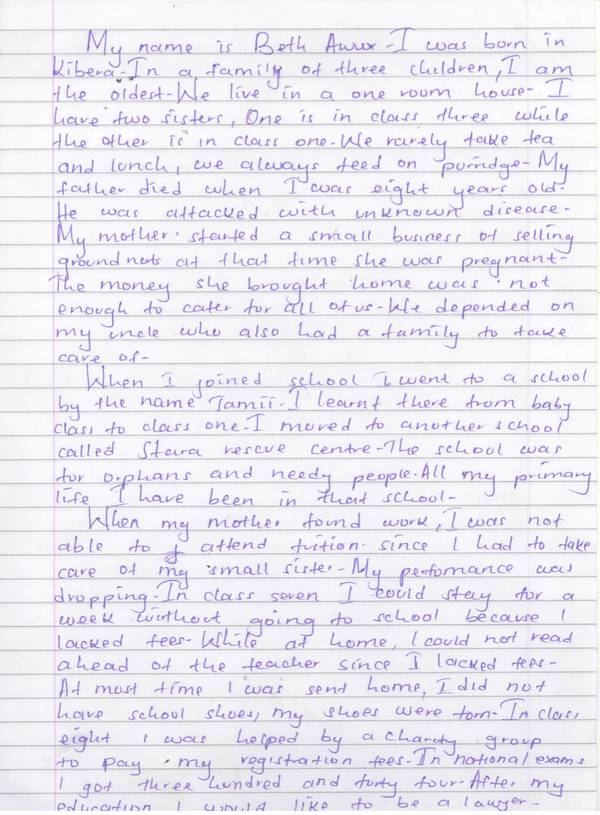 My name is Beth Awuor-I was born in
Kibera-In a family of three children, I am
the oldest-We live in a one room house-I
have two sisters, One is in class three while
the other is in class one-We rarely take tea
and lunch, we always feed on porridge-My
father died when I was eight years old-
He was attacked with unknown disease-
My mother started a small business of selling
groundnuts at that time she was pregnant-
The money she brought home was not
enough to cater for all of us-We depended on
my uncle who also had a family to take
care of-
When I joined school I went to a school
by the name Tamii-I learnt there from baby
class to class one-I moved to another school
called Stara rescue centre-The school was
for orphans and needy people.All my primary
life I have been in that school-
When my mother found work, I was not
able to attend tuition since I had to take
care of my small sister-My perfomance was
dropping-In class seven I could stay for a
week without going to school because I
lacked fees-While at home, I could not read
ahead of the teacher since I lacked fees-
At most time I was sent home, I did not
have school shoes, my shoes were torn-In class
eight I was helped by a charity group
to pay my registration fees-In national exams
I got three hundred and forty four-After my
education I would like to be a lawyer-